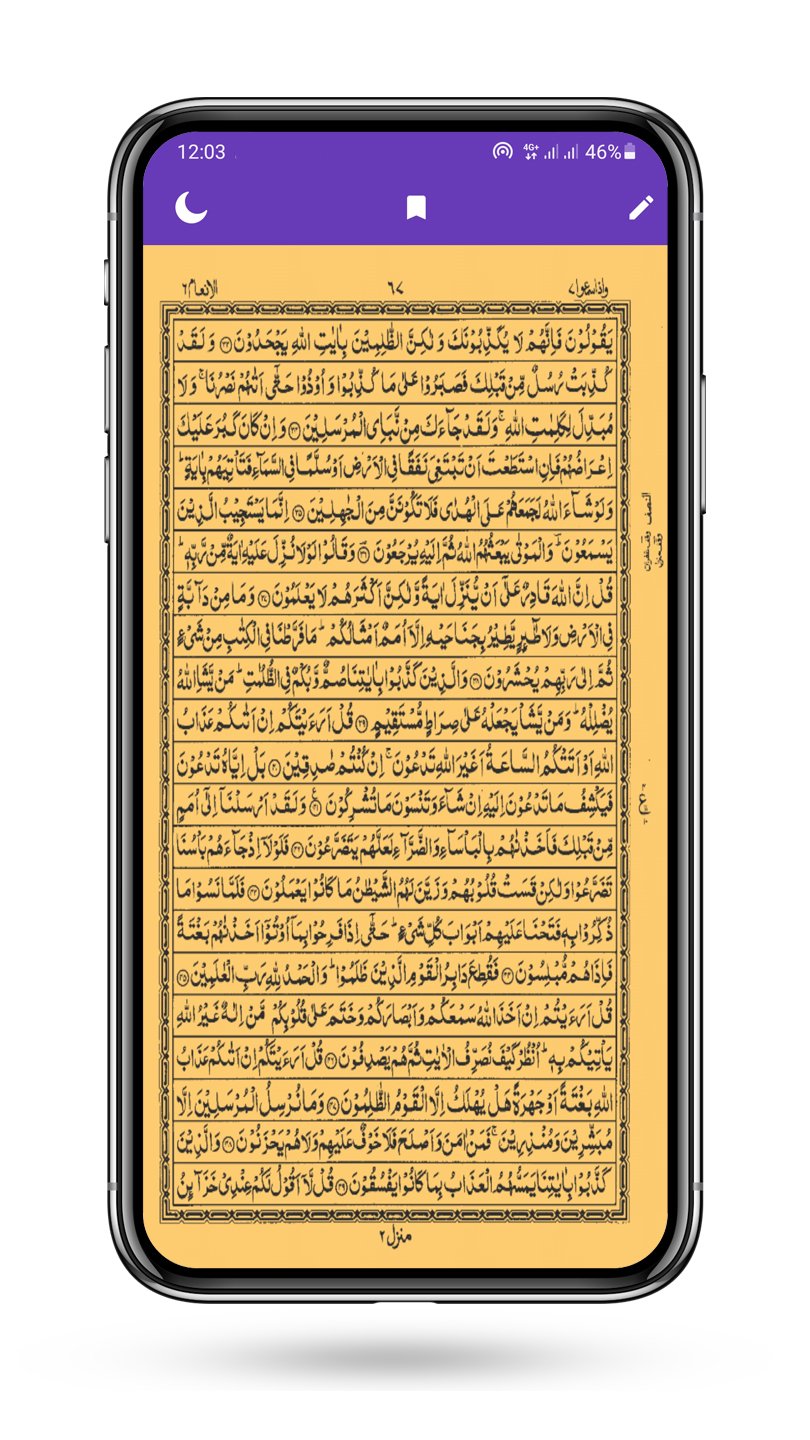 12:03
4G+ 46%
الانعام ٦ ٦٧ واذاسمعوا ٧
يَقُوْلُوْنَ فَاِنَّهُمْ لَا يُكَذِّبُوْنَكَ وَ لٰكِنَّ الظّٰلِمِيْنَ بِاٰيٰتِ اللّٰهِ يَجْحَدُوْنَ ﴿٣٣﴾ وَ لَقَدْ
كُذِّبَتْ رُسُلٌ مِّنْ قَبْلِكَ فَصَبَرُوْا عَلٰى مَا كُذِّبُوْا وَ اُوْذُوْا حَتّٰۤى اَتٰىهُمْ نَصْرُنَا ۚ وَ لَا
مُبَدِّلَ لِكَلِمٰتِ اللّٰهِ ۚ وَ لَقَدْ جَآءَكَ مِنْ نَّبَاِی الْمُرْسَلِيْنَ ﴿٣٤﴾ وَ اِنْ كَانَ كَبُرَ عَلَيْكَ
اِعْرَاضُهُمْ فَاِنِ اسْتَطَعْتَ اَنْ تَبْتَغِىَ نَفَقًا فِى الْاَرْضِ اَوْ سُلَّمًا فِى السَّمَآءِ فَتَاْتِيَهُمْ بِاٰيَةٍ ؕ
وَ لَوْ شَآءَ اللّٰهُ لَجَمَعَهُمْ عَلَى الْهُدٰى فَلَا تَكُوْنَنَّ مِنَ الْجٰهِلِيْنَ ﴿٣٥﴾ اِنَّمَا يَسْتَجِيْبُ الَّذِيْنَ
يَسْمَعُوْنَ ؕ وَ الْمَوْتٰى يَبْعَثُهُمُ اللّٰهُ ثُمَّ اِلَيْهِ يُرْجَعُوْنَ ﴿٣٦﴾ وَ قَالُوْا لَوْلَا نُزِّلَ عَلَيْهِ اٰيَةٌ مِّنْ رَّبِّهٖ ؕ
قُلْ اِنَّ اللّٰهَ قَادِرٌ عَلٰۤى اَنْ يُّنَزِّلَ اٰيَةً وَّ لٰكِنَّ اَكْثَرَهُمْ لَا يَعْلَمُوْنَ ﴿٣٧﴾ وَ مَا مِنْ دَآبَّةٍ
فِى الْاَرْضِ وَ لَا طٰٓئِرٍ يَّطِيْرُ بِجَنَاحَيْهِ اِلَّاۤ اُمَمٌ اَمْثَالُكُمْ ؕ مَا فَرَّطْنَا فِى الْكِتٰبِ مِنْ شَىْءٍ
ثُمَّ اِلٰى رَبِّهِمْ يُحْشَرُوْنَ ﴿٣٨﴾ وَ الَّذِيْنَ كَذَّبُوْا بِاٰيٰتِنَا صُمٌّ وَّ بُكْمٌ فِى الظُّلُمٰتِ ؕ مَنْ يَّشَاِ اللّٰهُ
يُضْلِلْهُ ؕ وَ مَنْ يَّشَاْ يَجْعَلْهُ عَلٰى صِرَاطٍ مُّسْتَقِيْمٍ ﴿٣٩﴾ قُلْ اَرَءَيْتَكُمْ اِنْ اَتٰىكُمْ عَذَابُ
اللّٰهِ اَوْ اَتَتْكُمُ السَّاعَةُ اَغَيْرَ اللّٰهِ تَدْعُوْنَ ۚ اِنْ كُنْتُمْ صٰدِقِيْنَ ﴿٤٠﴾ بَلْ اِيَّاهُ تَدْعُوْنَ
فَيَكْشِفُ مَا تَدْعُوْنَ اِلَيْهِ اِنْ شَآءَ وَ تَنْسَوْنَ مَا تُشْرِكُوْنَ ﴿٤١﴾ وَ لَقَدْ اَرْسَلْنَاۤ اِلٰۤى اُمَمٍ
مِّنْ قَبْلِكَ فَاَخَذْنٰهُمْ بِالْبَاْسَآءِ وَ الضَّرَّآءِ لَعَلَّهُمْ يَتَضَرَّعُوْنَ ﴿٤٢﴾ فَلَوْلَاۤ اِذْ جَآءَهُمْ بَاْسُنَا
تَضَرَّعُوْا وَ لٰكِنْ قَسَتْ قُلُوْبُهُمْ وَ زَيَّنَ لَهُمُ الشَّيْطٰنُ مَا كَانُوْا يَعْمَلُوْنَ ﴿٤٣﴾ فَلَمَّا نَسُوْا مَا
ذُكِّرُوْا بِهٖ فَتَحْنَا عَلَيْهِمْ اَبْوَابَ كُلِّ شَىْءٍ ؕ حَتّٰۤى اِذَا فَرِحُوْا بِمَاۤ اُوْتُوْۤا اَخَذْنٰهُمْ بَغْتَةً
فَاِذَا هُمْ مُّبْلِسُوْنَ ﴿٤٤﴾ فَقُطِعَ دَابِرُ الْقَوْمِ الَّذِيْنَ ظَلَمُوْا ؕ وَ الْحَمْدُ لِلّٰهِ رَبِّ الْعٰلَمِيْنَ ﴿٤٥﴾
قُلْ اَرَءَيْتُمْ اِنْ اَخَذَ اللّٰهُ سَمْعَكُمْ وَ اَبْصَارَكُمْ وَ خَتَمَ عَلٰى قُلُوْبِكُمْ مَّنْ اِلٰهٌ غَيْرُ اللّٰهِ
يَاْتِيْكُمْ بِهٖ ؕ اُنْظُرْ كَيْفَ نُصَرِّفُ الْاٰيٰتِ ثُمَّ هُمْ يَصْدِفُوْنَ ﴿٤٦﴾ قُلْ اَرَءَيْتَكُمْ اِنْ اَتٰىكُمْ عَذَابُ
اللّٰهِ بَغْتَةً اَوْ جَهْرَةً هَلْ يُهْلَكُ اِلَّا الْقَوْمُ الظّٰلِمُوْنَ ﴿٤٧﴾ وَ مَا نُرْسِلُ الْمُرْسَلِيْنَ اِلَّا
مُبَشِّرِيْنَ وَ مُنْذِرِيْنَ ۚ فَمَنْ اٰمَنَ وَ اَصْلَحَ فَلَا خَوْفٌ عَلَيْهِمْ وَ لَا هُمْ يَحْزَنُوْنَ ﴿٤٨﴾ وَ الَّذِيْنَ
كَذَّبُوْا بِاٰيٰتِنَا يَمَسُّهُمُ الْعَذَابُ بِمَا كَانُوْا يَفْسُقُوْنَ ﴿٤٩﴾ قُلْ لَّاۤ اَقُوْلُ لَكُمْ عِنْدِىْ خَزَآئِنُ
النصف
منزل ٢